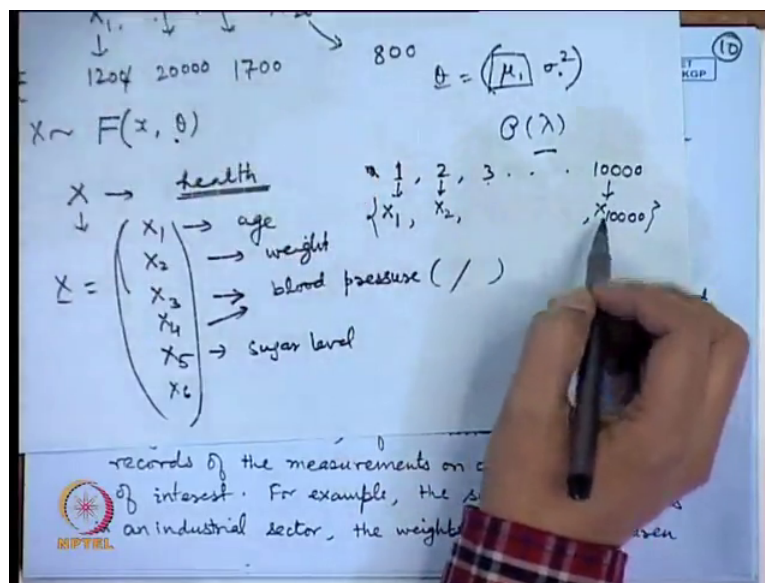 X1.
1200 20000 1700 800
θ = (μ1 σ²)
10
KGP
X ~ F(x, θ)
P(λ)
X → health
1, 2, 3 . . . 10000
{X1, X2, , X10000}
X = ( X1 → age
X2 → weight
X3 → blood pressure ( / )
X4
X5 → sugar level
X6 )
records of the measurements on
of interest. For example, the
in an industrial sector, the weights
NPTEL